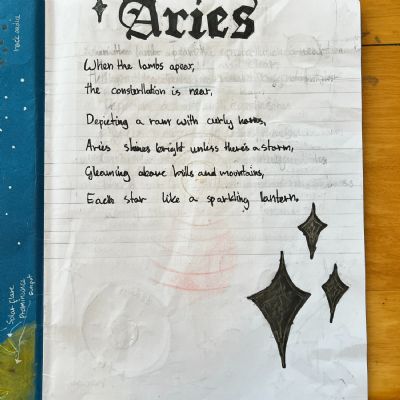 Aries
When the lambs apear,
the constellation is near,
Depicting a ram with curly horns,
Aries shines bright unless there's a storm,
Gleaming above hills and mountains,
Each star like a sparkling lantern.
Solar flare
Prominance